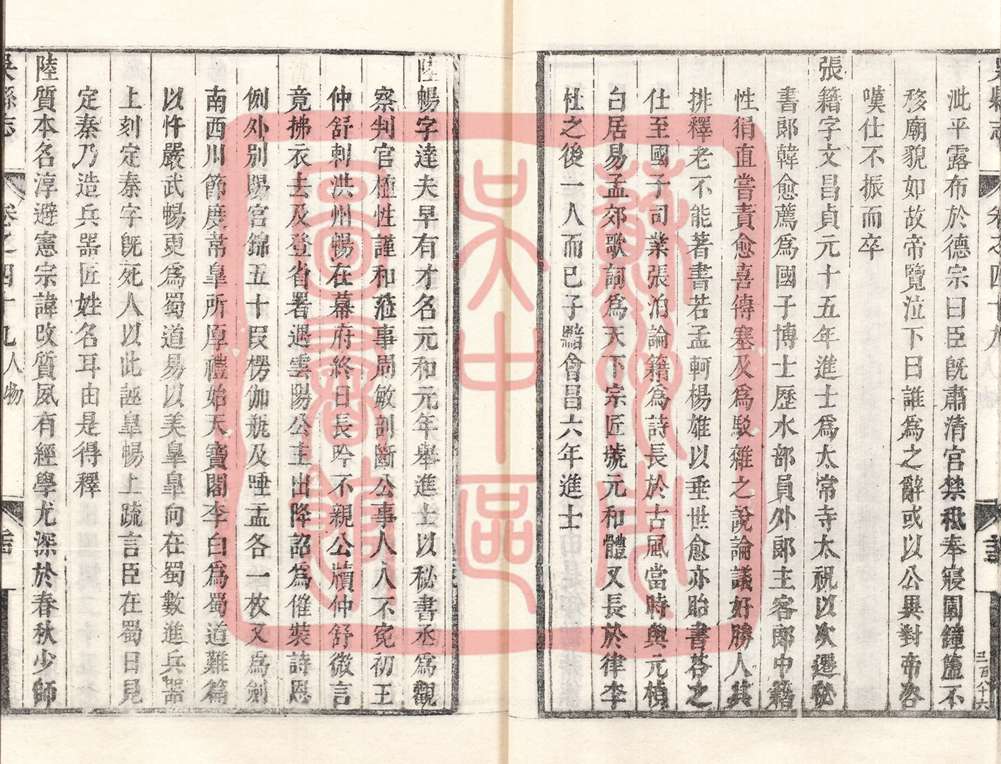 吳縣志 卷之四十九 人物
泚平露布於德宗曰臣既肅清宮禁秪奉寢園鐘簴不
移廟貌如故帝覽泣下曰誰為之辭或以公異對帝咨
嘆仕不振而卒
張籍字文昌貞元十五年進士為太常寺太祝以次遷秘
書郎韓愈薦為國子博士歷水部員外郎主客郎中籍
性狷直嘗責愈喜博塞及為駁雜之說論議好勝人其
排釋老不能著書若孟軻楊雄以垂世愈亦貽書答之
仕至國子司業張洎論籍為詩長於古風當時與元稹
白居易孟郊歌詞為天下宗匠號元和體又長於律李
杜之後一人而已子黯會昌六年進士
陸暢字達夫早有才名元和元年舉進士以秘書丞為觀
察判官植性謹和蒞事周敏剖斷公事人人不寃初王
仲舒刺洪州暢在幕府終日長吟不親公牘仲舒微言
竟拂衣去及登省署遇雲陽公主出降詔為催裝詩恩
例外別賜宮錦五十段楞伽瓶及唾盂各一枚又為劍
南西川節度韋皐所厚禮始天寶間李白為蜀道難篇
以忤嚴武暢更為蜀道易以美皐皐向在蜀數進兵器
上刻定秦字既死人以此誣皐暢上疏言臣在蜀日見
定秦乃造兵器匠姓名耳由是得釋
陸質本名淳避憲宗諱改質夙有經學尤深於春秋少師
吳縣志 卷之四十九 人物
蘇州市
吳中區
圖書館